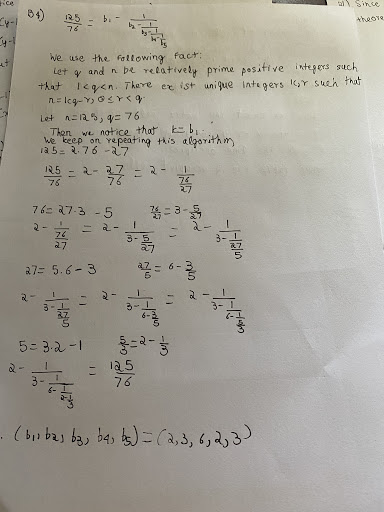 B4) 125/76 = b₁ - 1/(b₂ - 1/(b₃ - 1/(b₄ - 1/b₅)))
We use the following fact:
Let q and n be relatively prime positive integers such
that 1<q<n. There exist unique integers k, r such that
n=kq-r, 0≤r<q
Let n=125, q=76
Then we notice that k=b₁
We keep on repeating this algorithm,
125=2·76-27
125/76 = 2 - 27/76 = 2 - 1/(76/27)
76=27·3-5 76/27 = 3 - 5/27
2 - 1/(76/27) = 2 - 1/(3 - 5/27) = 2 - 1/(3 - 1/(27/5))
27=5·6-3 27/5 = 6 - 3/5
2 - 1/(3 - 1/(27/5)) = 2 - 1/(3 - 1/(6 - 3/5)) = 2 - 1/(3 - 1/(6 - 1/(5/3)))
5=3·2-1 5/3 = 2 - 1/3
2 - 1/(3 - 1/(6 - 1/(2 - 1/3))) = 125/76
(b₁, b₂, b₃, b₄, b₅)=(2,3,6,2,3)
Since